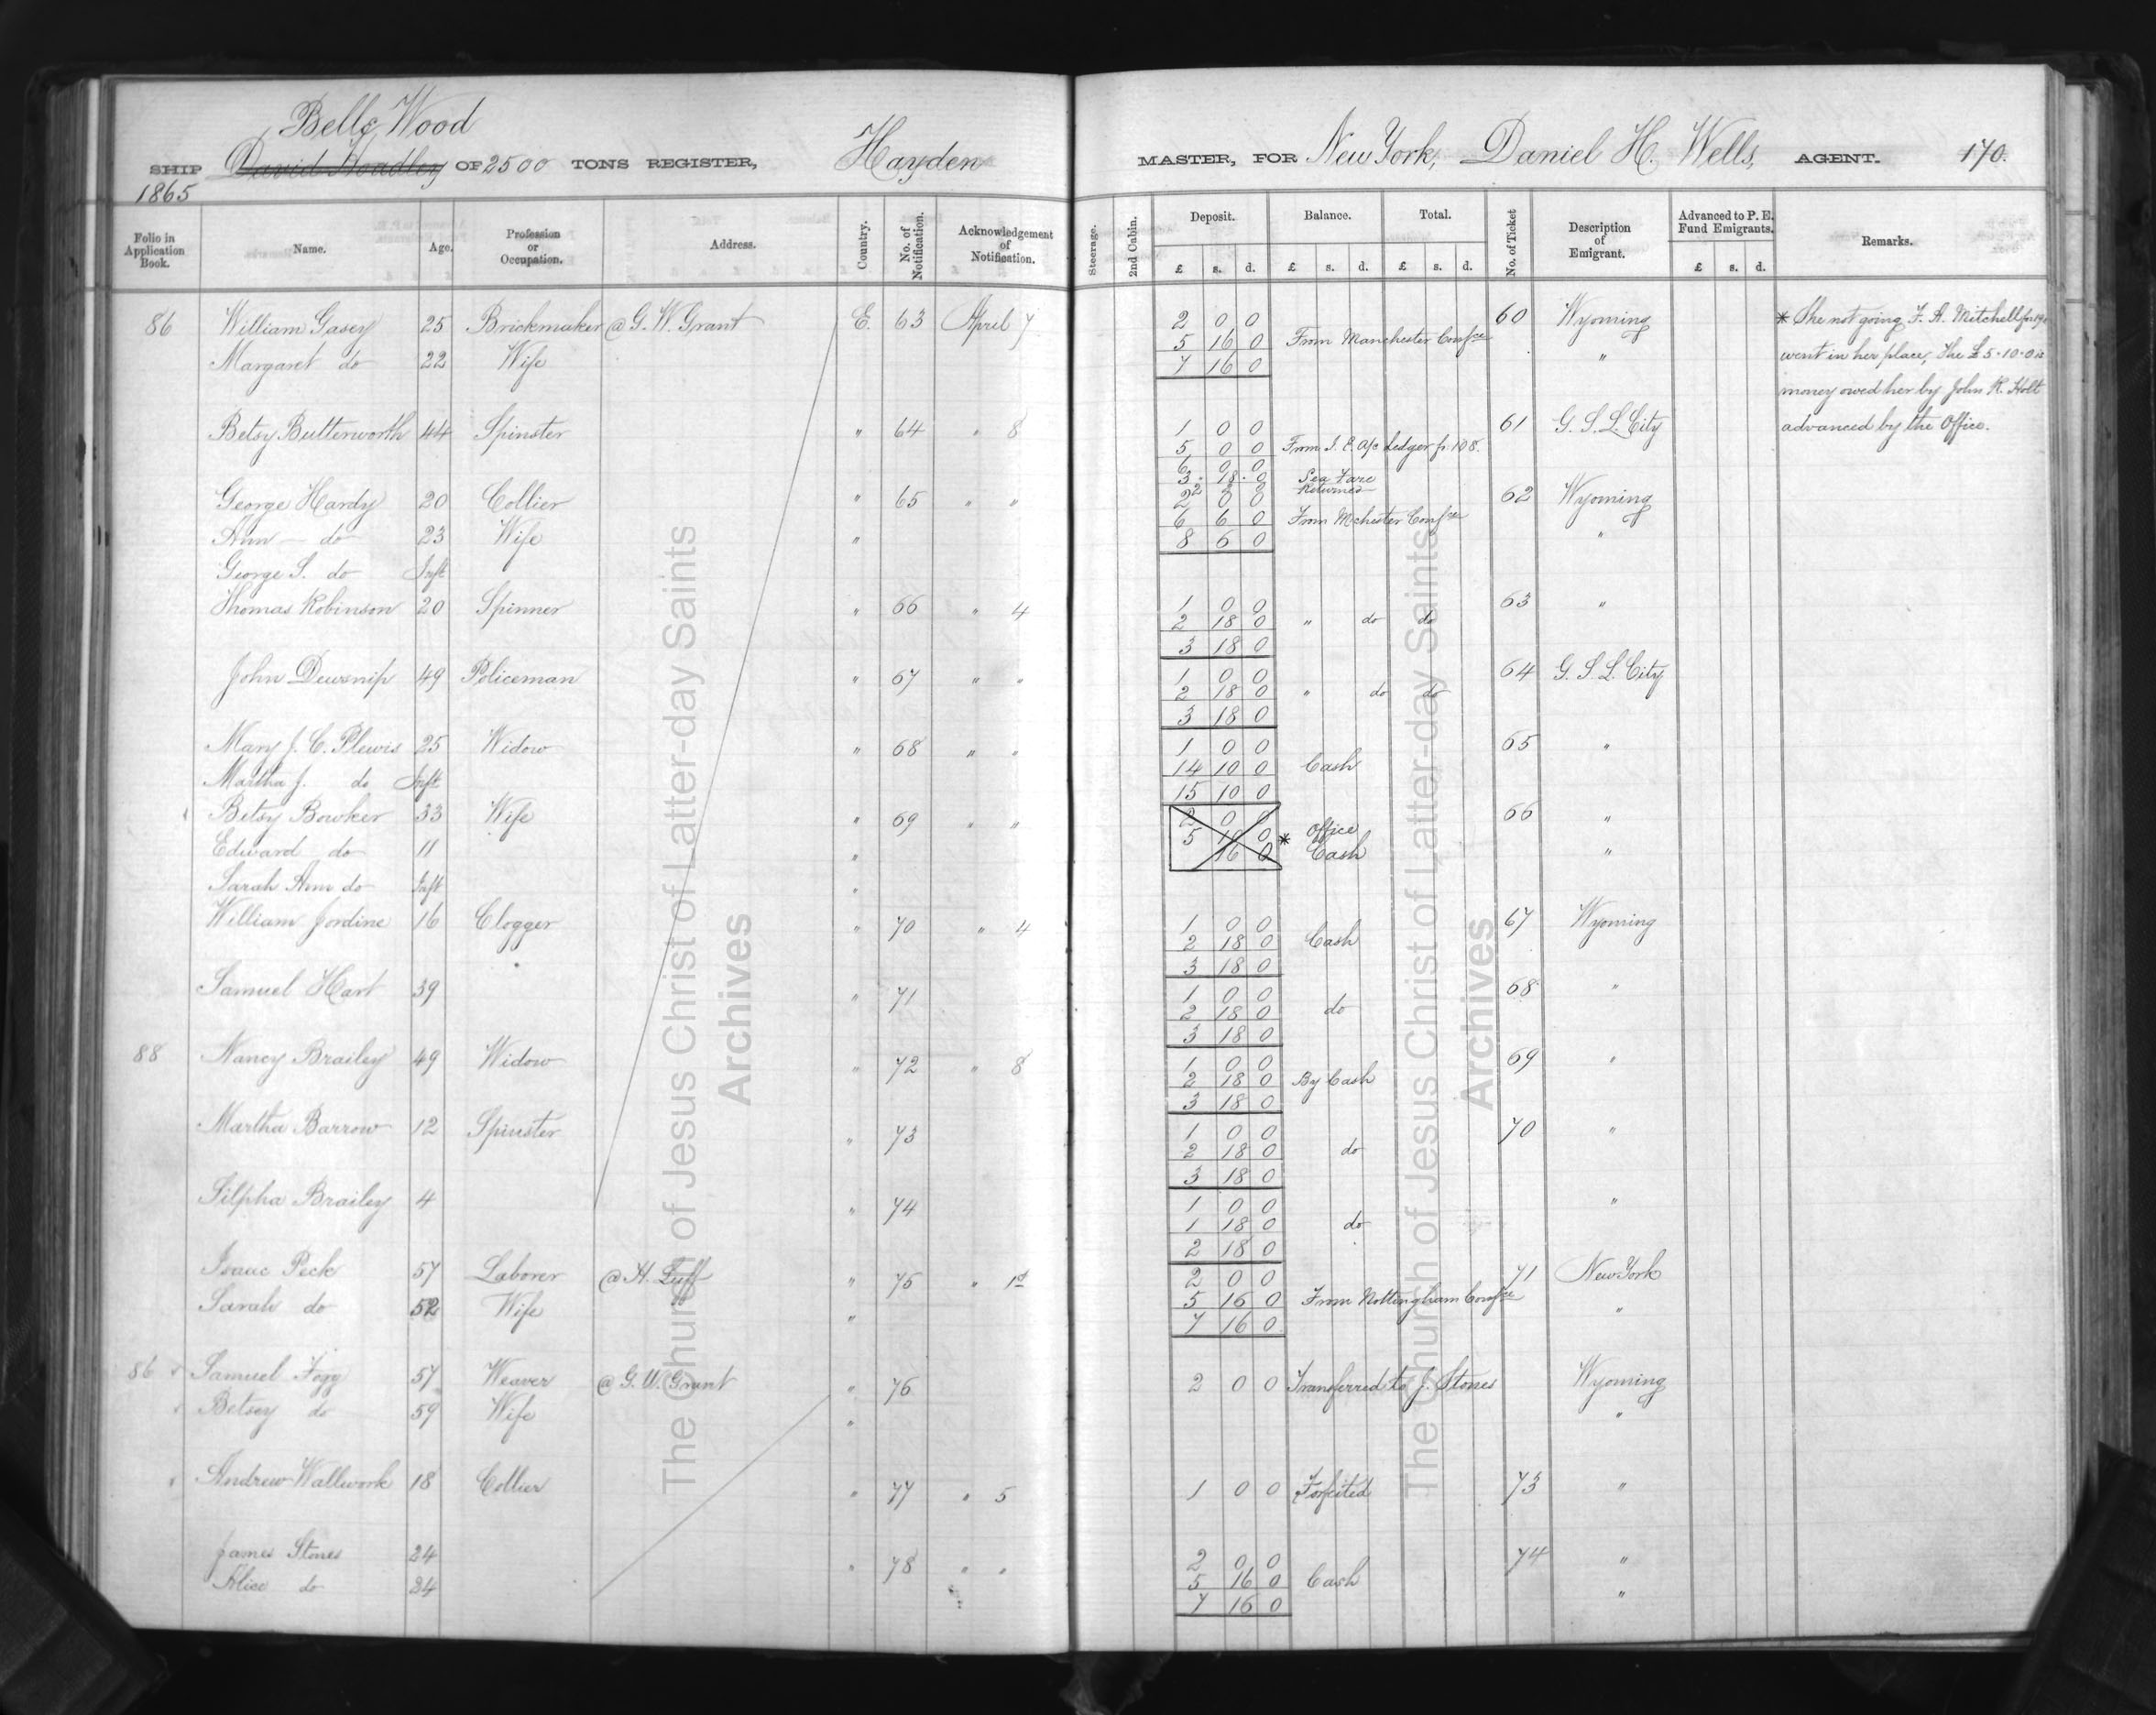 Belle Wood
SHIP David Hoadley OF 2500 TONS REGISTER, Hayden MASTER, FOR New York, Daniel H. Wells, AGENT. 170.
1865
Folio in Application Book. Name. Age. Profession or Occupation. Address. Country. No. of Notification. Acknowledgement of Notification. Steerage. 2nd Cabin. Deposit. Balance. Total. No. of Ticket Description of Emigrant. Advanced to P. E. Fund Emigrants. Remarks.
£ s. d. £ s. d. £ s. d. £ s. d.
86 William Gasey 25 Brickmaker @ G. W. Grant E. 63 April 7 2 0 0 60 Wyoming * She not going F. A. Mitchell
5 16 0 From Manchester Confce
Margaret do 22 Wife 7 16 0 " went in her place, The £5-10-0 is
money owed her by John R. Holt
Betsy Butterworth 44 Spinster " 64 " 8 1 0 0 61 G. S. L. City advanced by the Office.
5 0 0 From I. E. a/c Ledger p. 108.
6 0 0
3. 18. 0 Sea Fare
2 2 0 Returned
George Hardy 20 Collier " 65 " " 2 0 0 62 Wyoming
6 6 0 From Mchester Confce
Ann do 23 Wife " 8 6 0 "
George S. do Inft
Thomas Robinson 20 Spinner " 66 " 4 1 0 0 63 "
2 18 0 " do do
3 18 0
John Dewsnip 49 Policeman " 67 " " 1 0 0 64 G. S. L. City
2 18 0 " do do
3 18 0
Mary J. C. Plewis 25 Widow " 68 " " 1 0 0 65 "
14 10 0 Cash
Martha J. do Inft 15 10 0
Betsy Bowker 33 Wife " 69 " " 2 0 0 66 "
* Office
Edward do 11 " 5 16 0 Cash "
16 0
Sarah Ann do Inft "
William Jordine 16 Clogger " 70 " 4 1 0 0 67 Wyoming
2 18 0 Cash
3 18 0
Samuel Hart 39 " 71 1 0 0 68 "
2 18 0 do
3 18 0
88 Nancy Brailey 49 Widow " 72 " 8 1 0 0 69 "
2 18 0 By Cash
3 18 0
Martha Barrow 12 Spinster " 73 1 0 0 70 "
2 18 0 do
3 18 0
Silpha Brailey 4 " 74 1 0 0 "
1 18 0 do
2 18 0
Isaac Peck 57 Laborer @ H. Luff " 75 " 1st 2 0 0 71 New York
5 16 0 From Nottingham Confce
Sarah do 52 Wife " 7 16 0 "
86 Samuel Fogg 57 Weaver @ G. W. Grant " 76 2 0 0 Transferred to J. Stones Wyoming
Betsey do 59 Wife " "
Andrew Wallwork 18 Collier " 77 " 5 1 0 0 Forfeited 73 "
James Stones 24 " 78 " " 2 0 0 74 "
5 16 0 Cash
Alice do 24 7 16 0 "
The Church of Jesus Christ of Latter-day Saints
Archives
The Church of Jesus Christ of Latter-day Saints
Archives